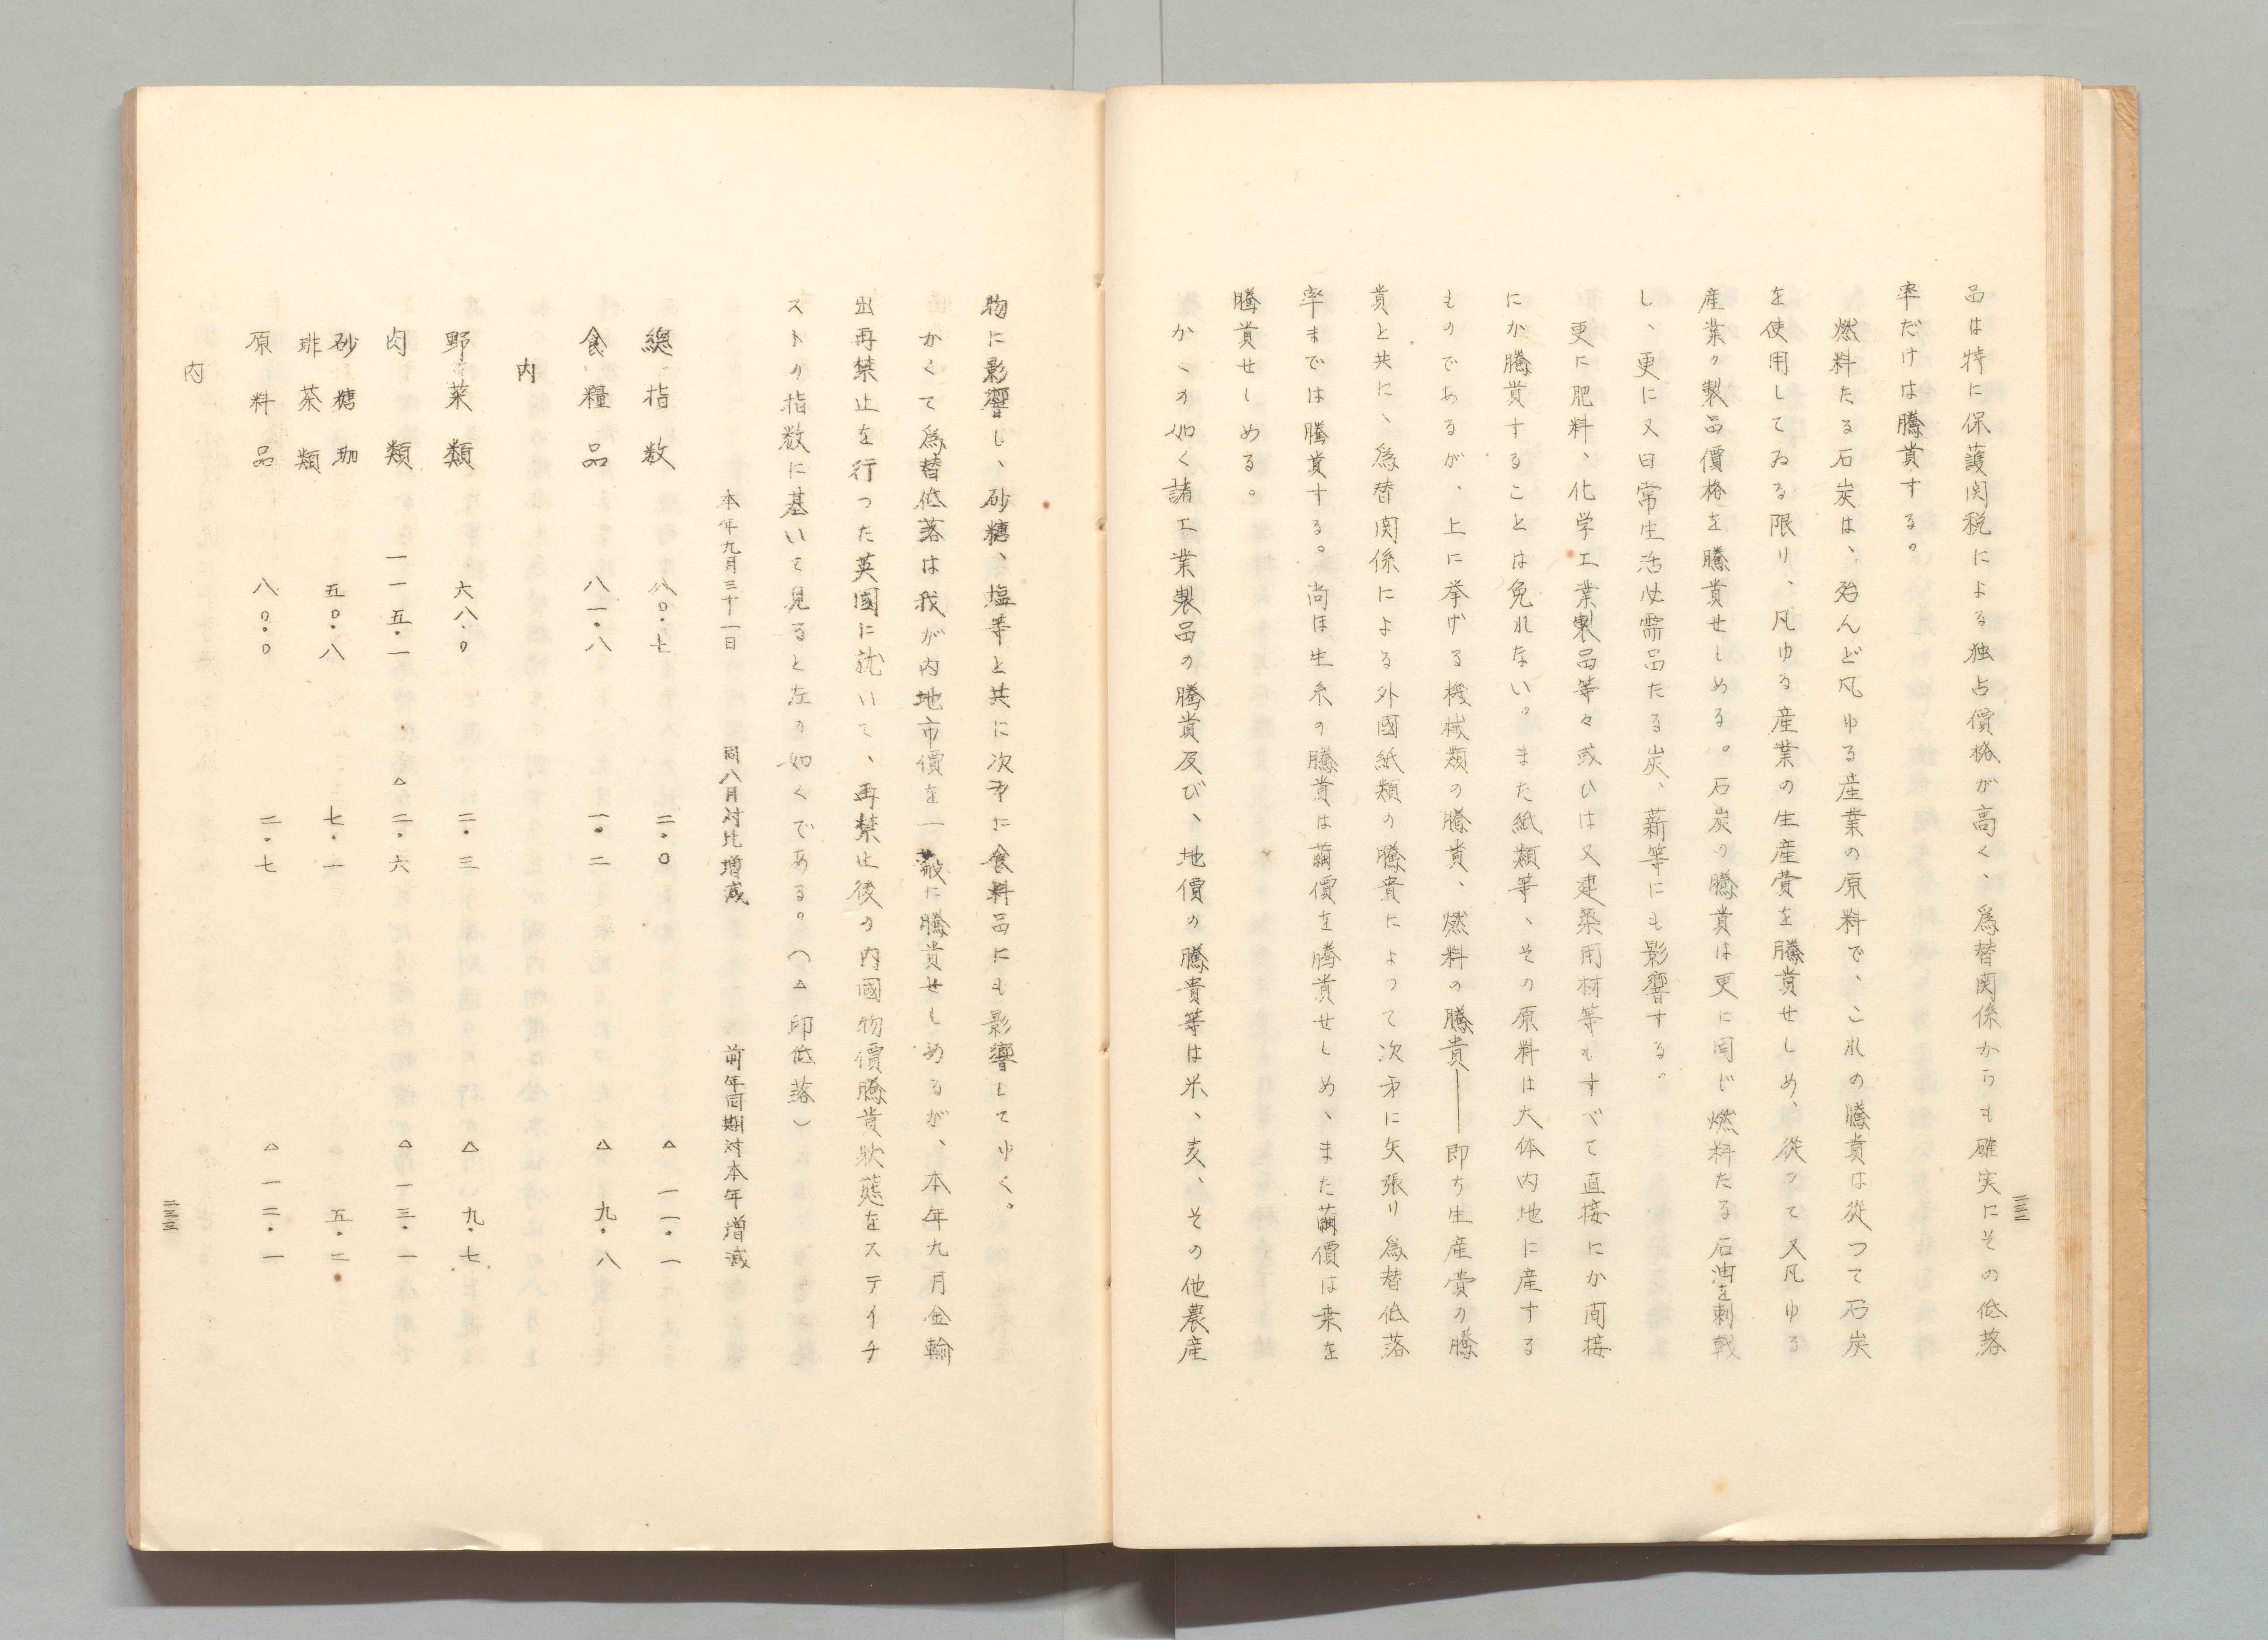 品は特に保護関税による独占價格が高く、爲替関係からも確実にその低落
率だけは騰貴する。
燃料たる石炭は、殆んど凡ゆる産業の原料で、これの騰貴は從つて石炭
を使用してゐる限り、凡ゆる産業の生産費を騰貴せしめ、從つて又凡ゆる
産業の製品價格を騰貴せしめる。石炭の騰貴は更に同じ燃料たる石油を刺戟
し、更に又日常生活必需品たる炭、薪等にも影響する。
更に肥料、化学工業製品等々或ひは又建築用材等もすべて直接にか間接
にか騰貴することは免れない。また紙類等、その原料は大体内地に産する
ものであるが、上に挙げる機械類の騰貴、燃料の騰貴――即ち生産費の騰
貴と共に、爲替関係による外國紙類の騰貴によつて次才に矢張り爲替低落
率までは騰貴する。尚ほ生糸の騰貴は繭價を騰貴せしめ、また繭價は桒を
騰貴せしめる。
かくの如く諸工業製品の騰貴及び、地價の騰貴等は米、麦、その他農産
二三二
物に影響し、砂糖、塩等と共に次才に食料品にも影響してゆく。
かくて爲替低落は我が内地市價を一般に騰貴せしめるが、本年九月金輸
出再禁止を行つた英國に就いて、再禁止後の内國物價騰貴狀態をステイチ
ストの指数に基いて見ると左の如くである。(△印低落)
本年九月三十一日 同八月対比増减 前年同期対本年増减
總指数 八〇・七 二・〇 △一一・一
食糧品 八一・八 一・二 △九・八
内
野菜類 六八・〇 二・三 △九・七
肉類 一一五・一 △二・六 △一三・一
砂糖珈
琲茶類 五〇・八 七・一 五・二
原料品 八〇・〇 二・七 △一二・一
内
二三三